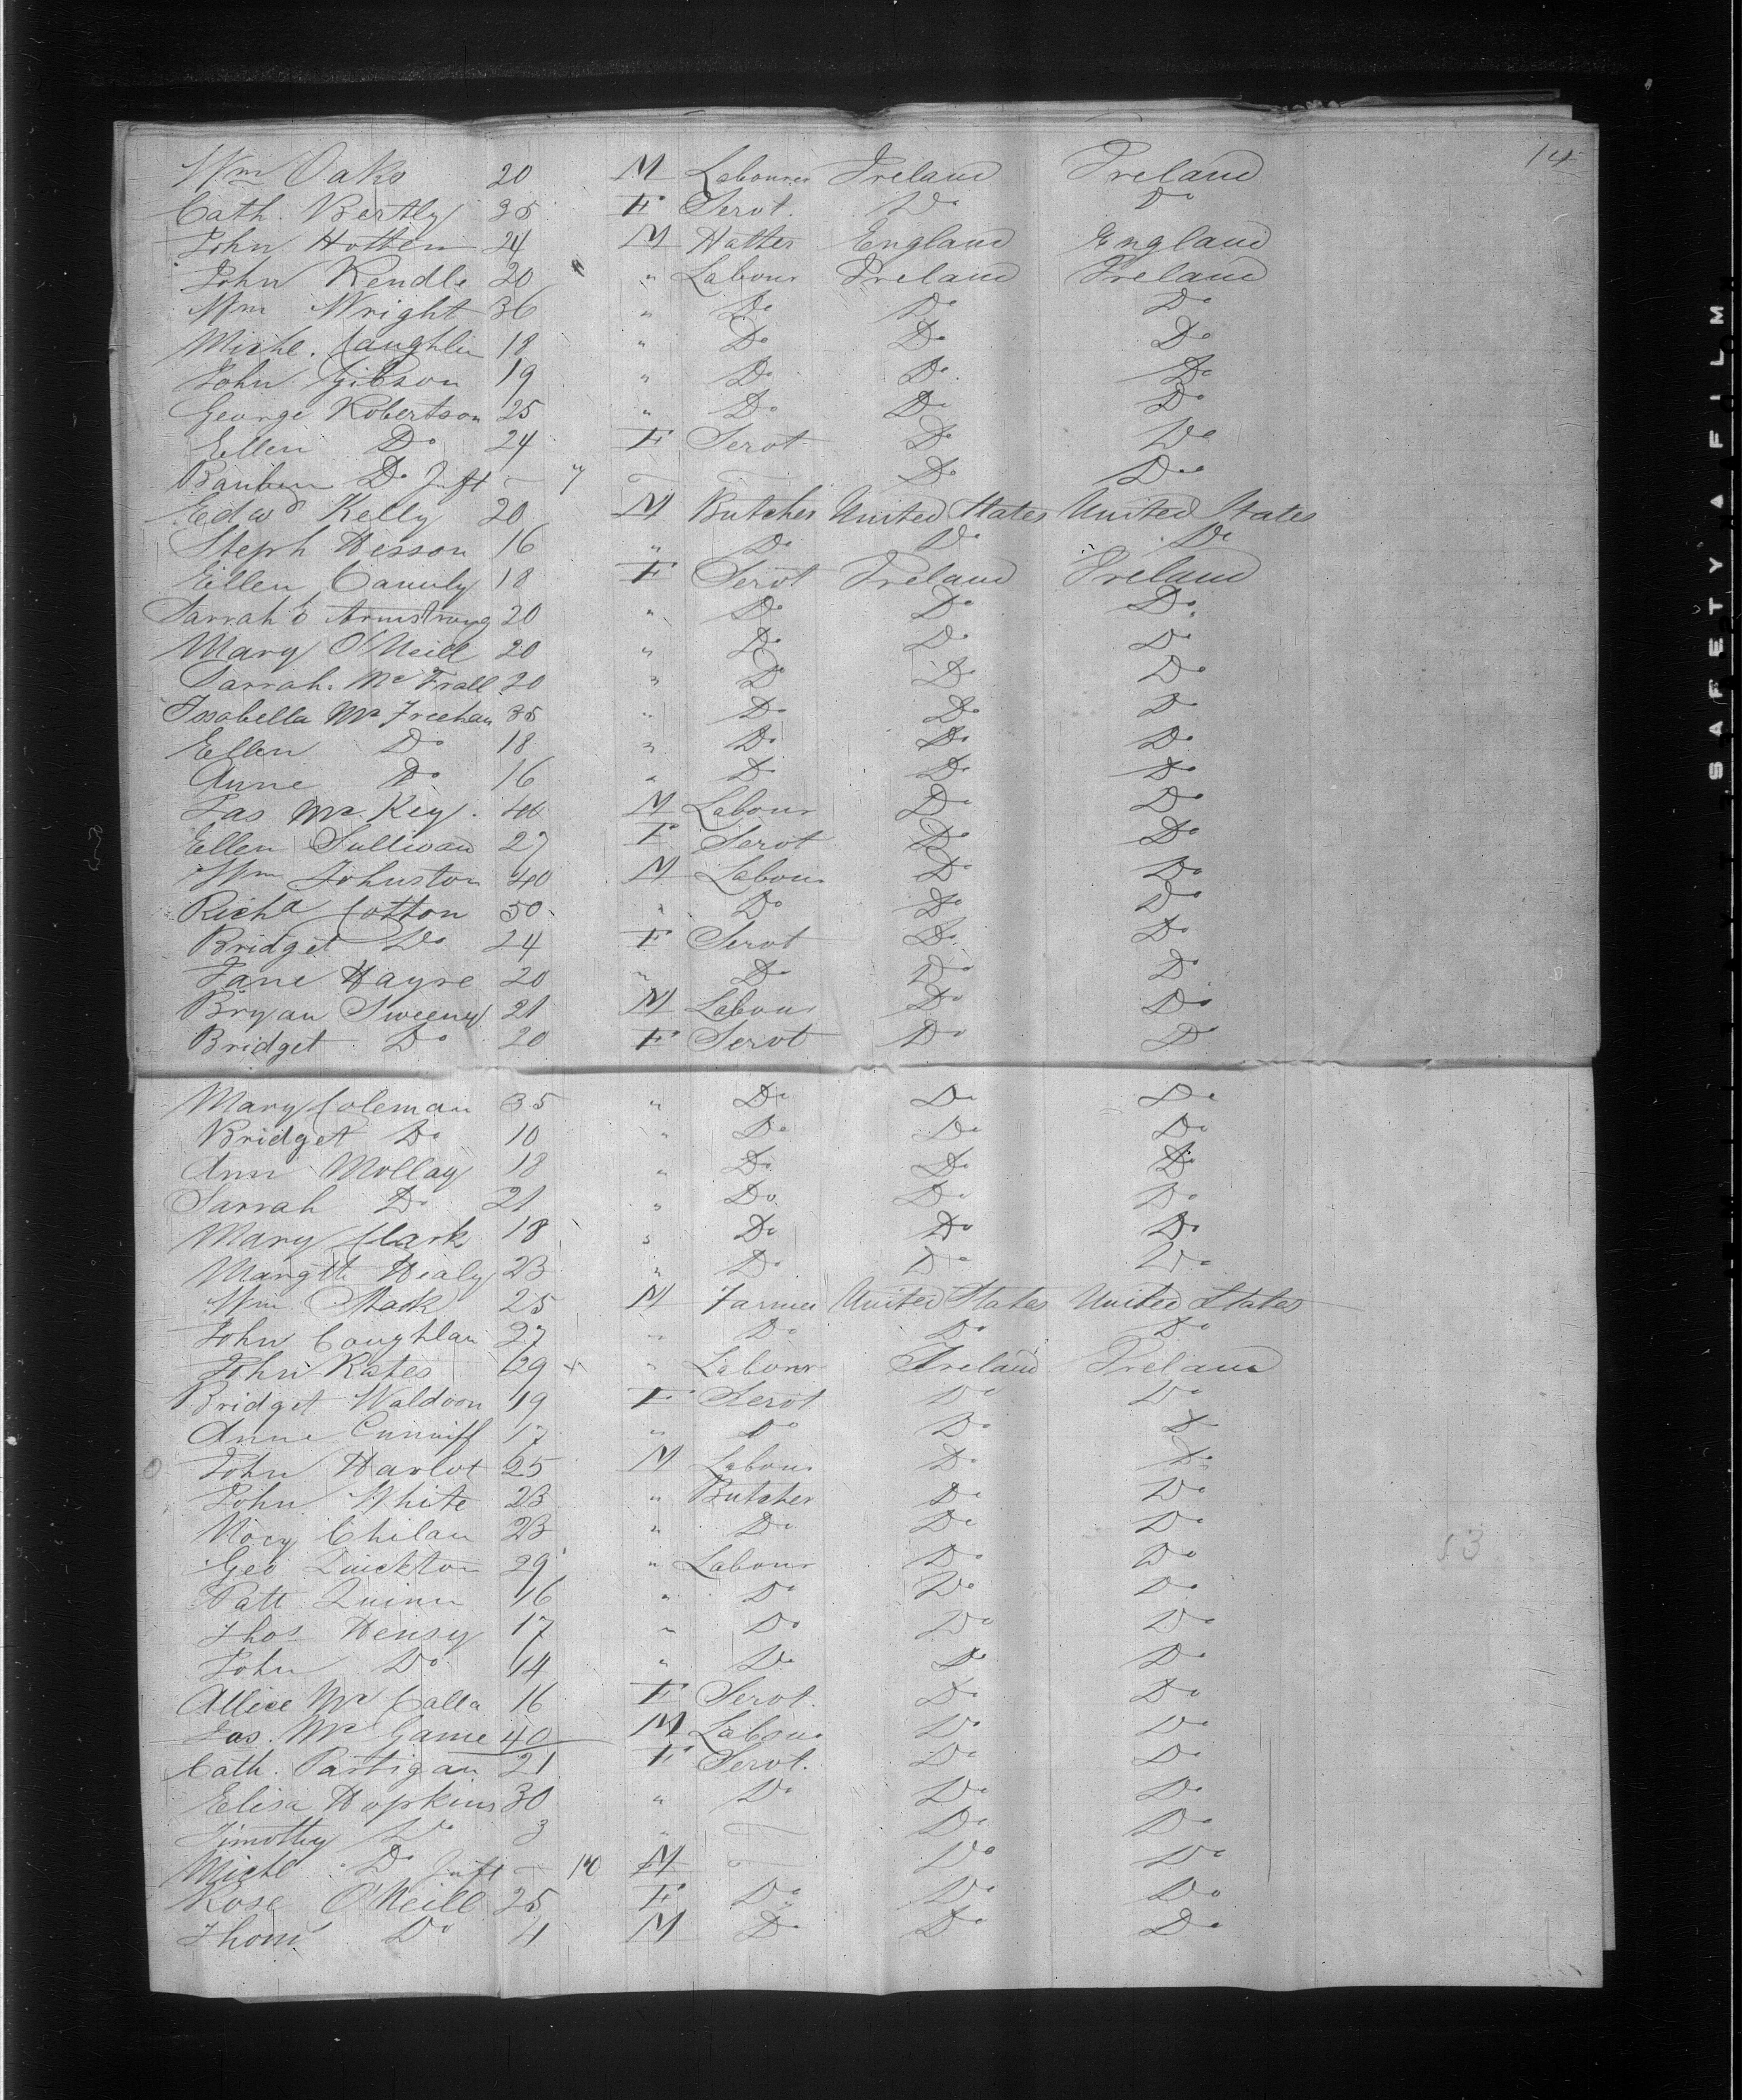 14
Wm Oaks 20 M Labourer Ireland Ireland
Cath. Bertly 35 F Servt. Do Do
John Hotten 24 M Hatter England England
John Kendle 20 " Labour Ireland Ireland
Wm Wright 36 " Do Do Do
Michl. Caughlin 18 " Do Do Do
John Gibson 19 " Do Do Do
George Robertson 25 " Do Do Do
Ellen Do 24 F Servt Do Do
Do Inft - 7 Do Do
Edwd Kelly 20 M Butcher United States United States
Steph Hesson 16 " Do Do Do
Eillen 18 F Servt Ireland Ireland
Sarrah E Armstrong 20 " Do Do Do
Mary O'Neill 20 " Do Do Do
Sarrah. Mc Frall 20 " Do Do Do
Issabella Mc Freehan 35 " Do Do Do
Ellen Do 18 " Do Do Do
Anne Do 16 " Do Do Do
Jas Mc Key. 40 M Labour Do Do
Ellen Sullivan 27 F Servt Do Do
Wm Johnston 40 M Labour Do Do
Richd Cotton 50 " Do Do Do
Bridget Do 24 F Servt Do Do
Jane Hayse 20 " Do Do Do
Bryan Sweeny 21 M Labour Do Do
Bridget Do 20 F Servt Do Do
Mary Coleman 35 " Do Do Do
Bridget Do 10 " Do Do Do
Ann Mollay 18 " Do Do Do
Sarrah Do 21 " Do Do Do
Mary Clark 18 " Do Do Do
Margtt Healy 23 " Do Do Do
Wm Stack 25 M Farmer United States United States
John Coughlan 27 " Do Do Do
John Kates 29 " Labour Ireland Ireland
Bridget Waldoon 19 F Servt Do Do
Anne Cunniff 17 " Do Do Do
John Harlot 25 M Labour Do Do
John White 23 " Butcher Do Do
Chilan 23 " Do Do Do
Geo Quickton 29 " Labour Do Do
53
Patt Quinn 16 " Do Do Do
Thos Hensy 17 " Do Do Do
John Do 14 " Do Do Do
Allice Mc Calla 16 F Servt. Do Do
Jas. Mc Game 40 M Labour Do Do
Cath. Partigan 21 F Servt. Do Do
Elisa Hopkins 30 " Do Do Do
Timothy Do 3 " Do Do
Michl Do Inft - 10 M Do Do
Rose O'Neill 25 F Do Do Do
Thom Do 4 M Do Do Do
SAFETY FILM